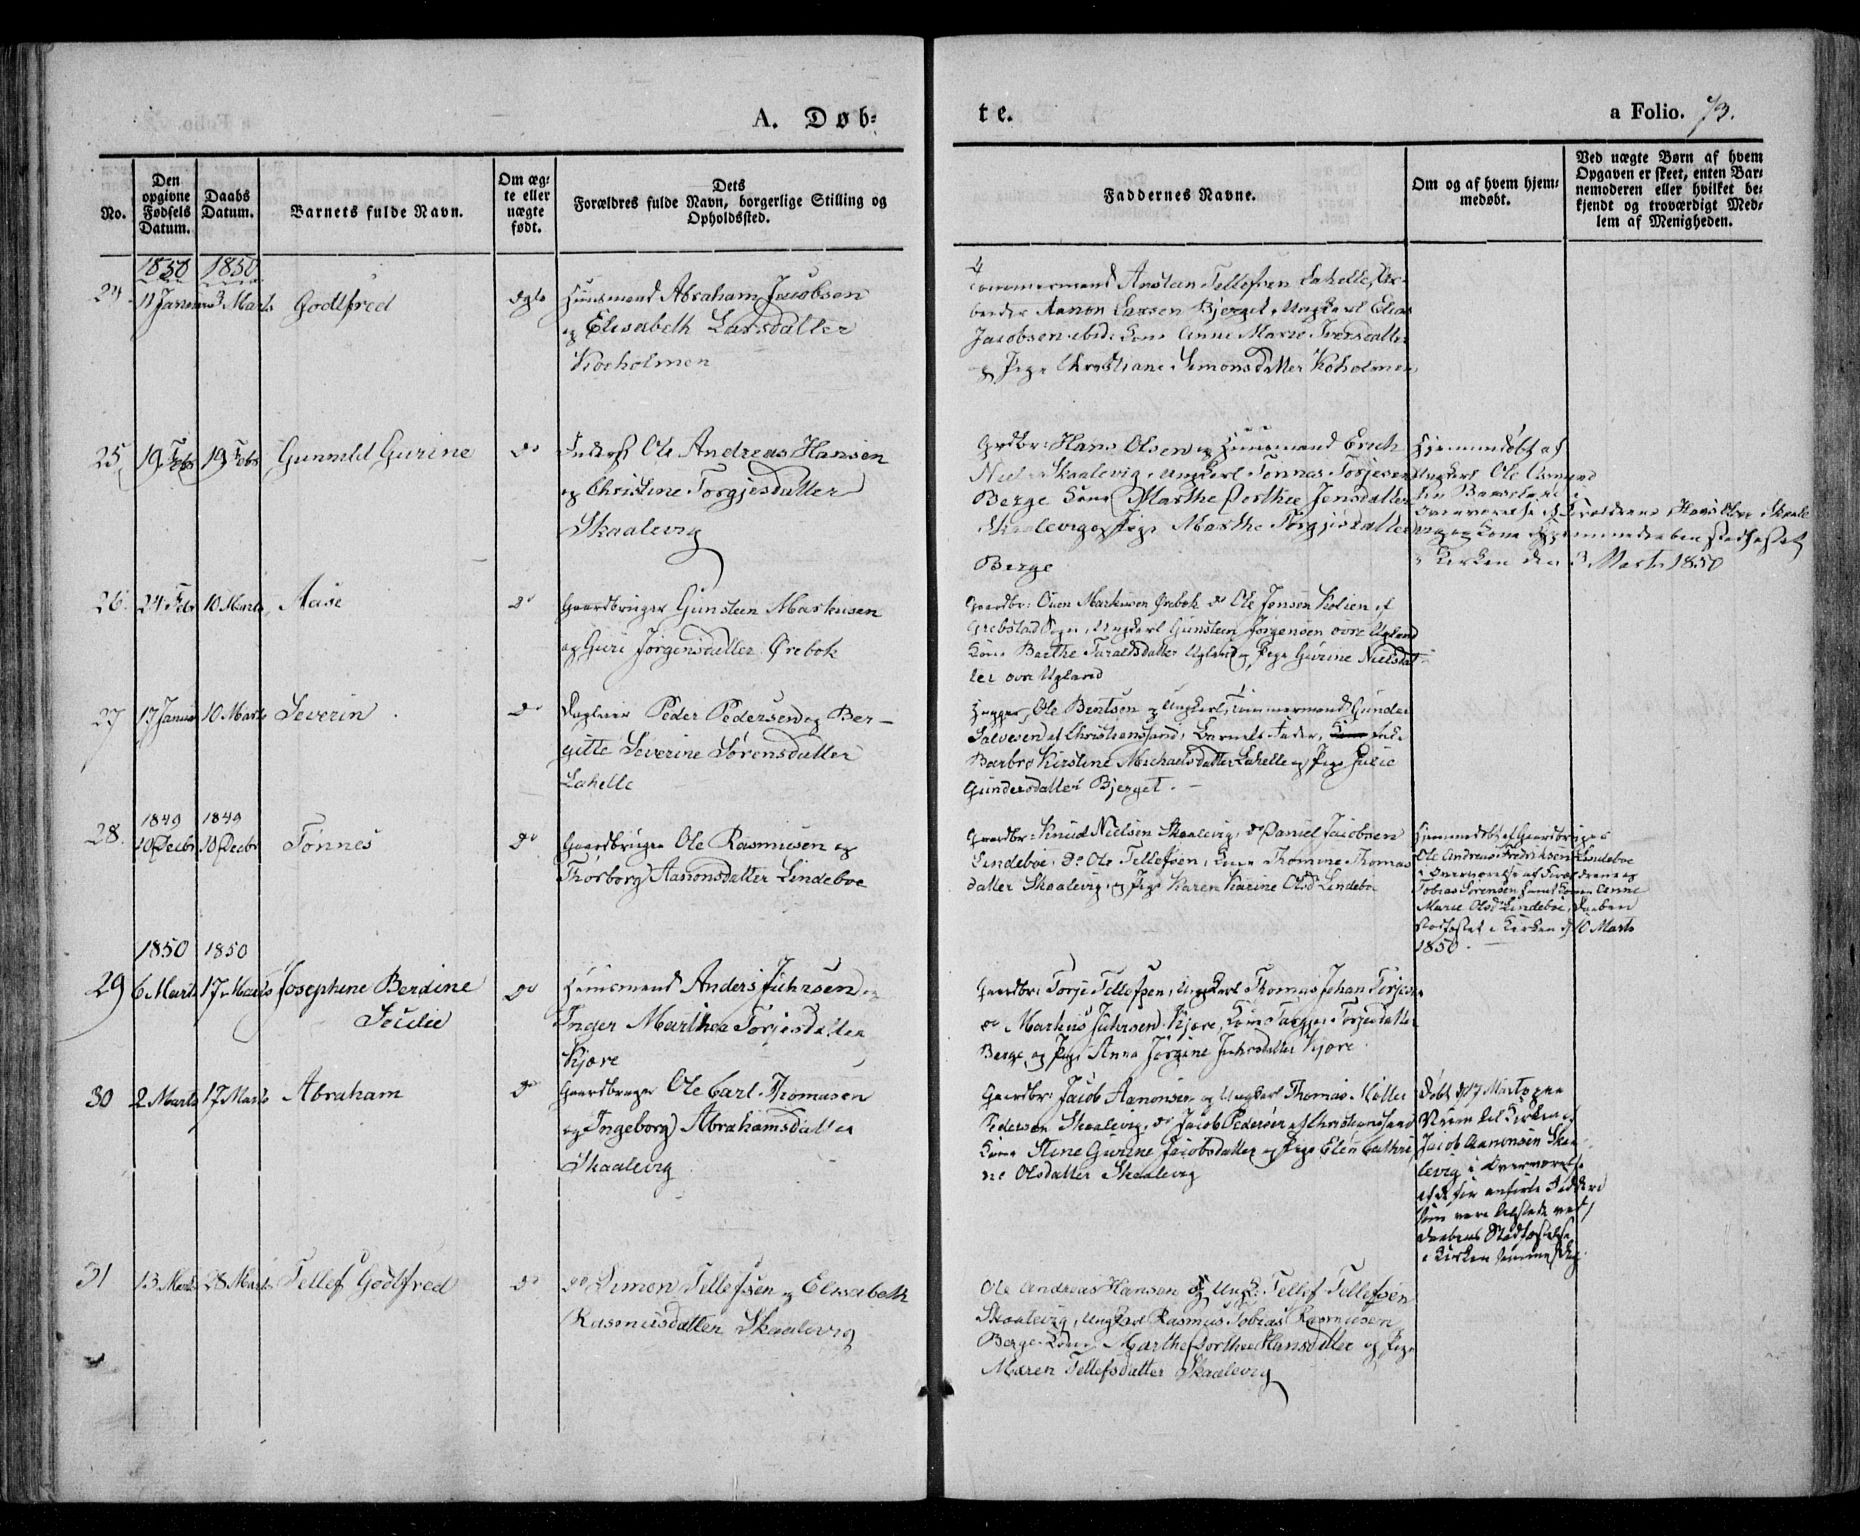 A. Døb-
te.
a Folio. 73.
No.
Den opgivne Fødsels Datum.
Daabs Datum.
Barnets fulde Navn.
Om ægte eller nægte født.
Dets
Forældres fulde Navn, borgerlige Stilling og
Opholdssted.
Faddernes Navne.
Om og af hvem hjem-
medøbt.
Ved nægte Børn af hvem
Opgaven er skeet, enten Bar-
nemoderen eller hvilket be-
kjendt og troværdigt Med-
lem af Menigheden.
1850 1850
24 11 Januar 3 Marts Godtfred ægte Huusmand Abraham Jacobsen
og Elisabeth Larsdatter
Koeholmen
Tømmermand Austen Tellefsen Lahelle, Ar-
beider Aanon Larsen Bjerget, Ungkarl Elias
Jacobsen ibid: Kone Anne Marie Iversdatter
og Pige Christiane Simonsdatter Koholmen
25 19 Febr 19 Febr Gunnild Gurine do Inderst Ole Andreas Hansen
og Christine Torgjesdatter
Skaalevig
Grdbr: Hans Olsen og Huusmand Erich
Niels Skaalevig, Ungkarl Tønnes Torjesen
Berge Kone Marthe Dorthee Jensdatter
Skaalevig og Pige Marthe Torgjesdatter
Berge
Hjemmedøbt af
Ungkarl Ole
i
Overværelse af Forældrene, Hans Olsen Skaale
vig og Kone Hjemmedaaben stadfæstet
i Kirken den 3 Marts 1850
26 24 Febr 10 Marts Aase do Gaardbruger Gunsteen Markusen
og Guri Jørgensdatter Ørebok
Gaardbr: Ouen Markusen Ørebok do Ole Jensen Kolien af
Grebstad Sogn, Ungkarl Gunsteen Jørgensen øvre Ugland
Kone Barthe Taraldsdatter Ugland og Pige Gurine Nielsdat-
ter øvre Ugland
27 17 Januar 10 Marts Severin do Peder Pedersen og Ber-
gitte Severine Sørensdatter
Lahelle
Ole Bentsen og Ungkarl, Tømmermand Gunder
Salvesen af Christianssand, Barnets Fader,
Barbro Kirstine Michaelsdatter Lahelle og Pige Julie
Gundersdatter Bjerget.
1849 1849
28 10 Decbr 10 Decbr Tønnes do Gaardbruger Ole Rasmusen og
Thorborg Aanonsdatter Lindeboe
Gaardbr: Knud Nielsen Skaalevig, do Daniel Jacobsen
Lindeboe, do Ole Tellefsen, Kone Thomine Thomas
datter Skaalevig, og Pige Karen Karine Olsd Lindeboe
Hjemmedøbt af Gaardbruger
Ole Andreas Fredriksen Lindeboe
i Overværelse af Forældrene og
Tobias Sørensen samt Kone Anne
Marie Olsd. Lindeboe, Daaben
stadfæstet i Kirken d 10 Marts
1850
1850 1850
29 6 Marts 17 Marts Josephine Berdine
Secilie do Huusmand Anders Juhrsen og
Inger Marthea Torjesdatter
Kjære
Gaardbr: Torje Tellefsen, Ungkarl Thomas Johan Torjesen
do Markus Juhrsen Kjære, Kone Torjesdatter
Berge og Pige Anna Jørgine Juhrsdatter Kjære
30 2 Marts 17 Marts Abraham do Gaardbruger Ole Carl Thomasen
og Ingeborg Abrahamsdatter
Skaalevig
Gaardbr: Jacob Aanonsen og Ungkarl Thomas Møller
Pedersen Skaalevig, do Jacob Pedersen af Christianssand
Kone Stine Gurine Jacobsdatter og Pige Elen Cathri
ne Olsdatter Skaalevig
Døbt d 17 Marts paa
Veien til Kirken af
Jacob Aanonsen Skaa-
levig i Overværelse
af de før anførte Faddere
som vare tilstede ved
Daabens Stadfæstelse
i Kirken samme Dag
31 13 Marts 28 Marts Tellef Godtfred do do Simon Tellefsen og Elisabeth
Rasmusdatter Skaalevig
Ole Andreas Hansen og Ungk: Tellef Tellefsen
Skaalevig, Ungkarl Rasmus Tobias Rasmusen
Berge Kone Marthe Dorthea Hansdatter og Pige
Maren Tellefsdatter Skaalevig